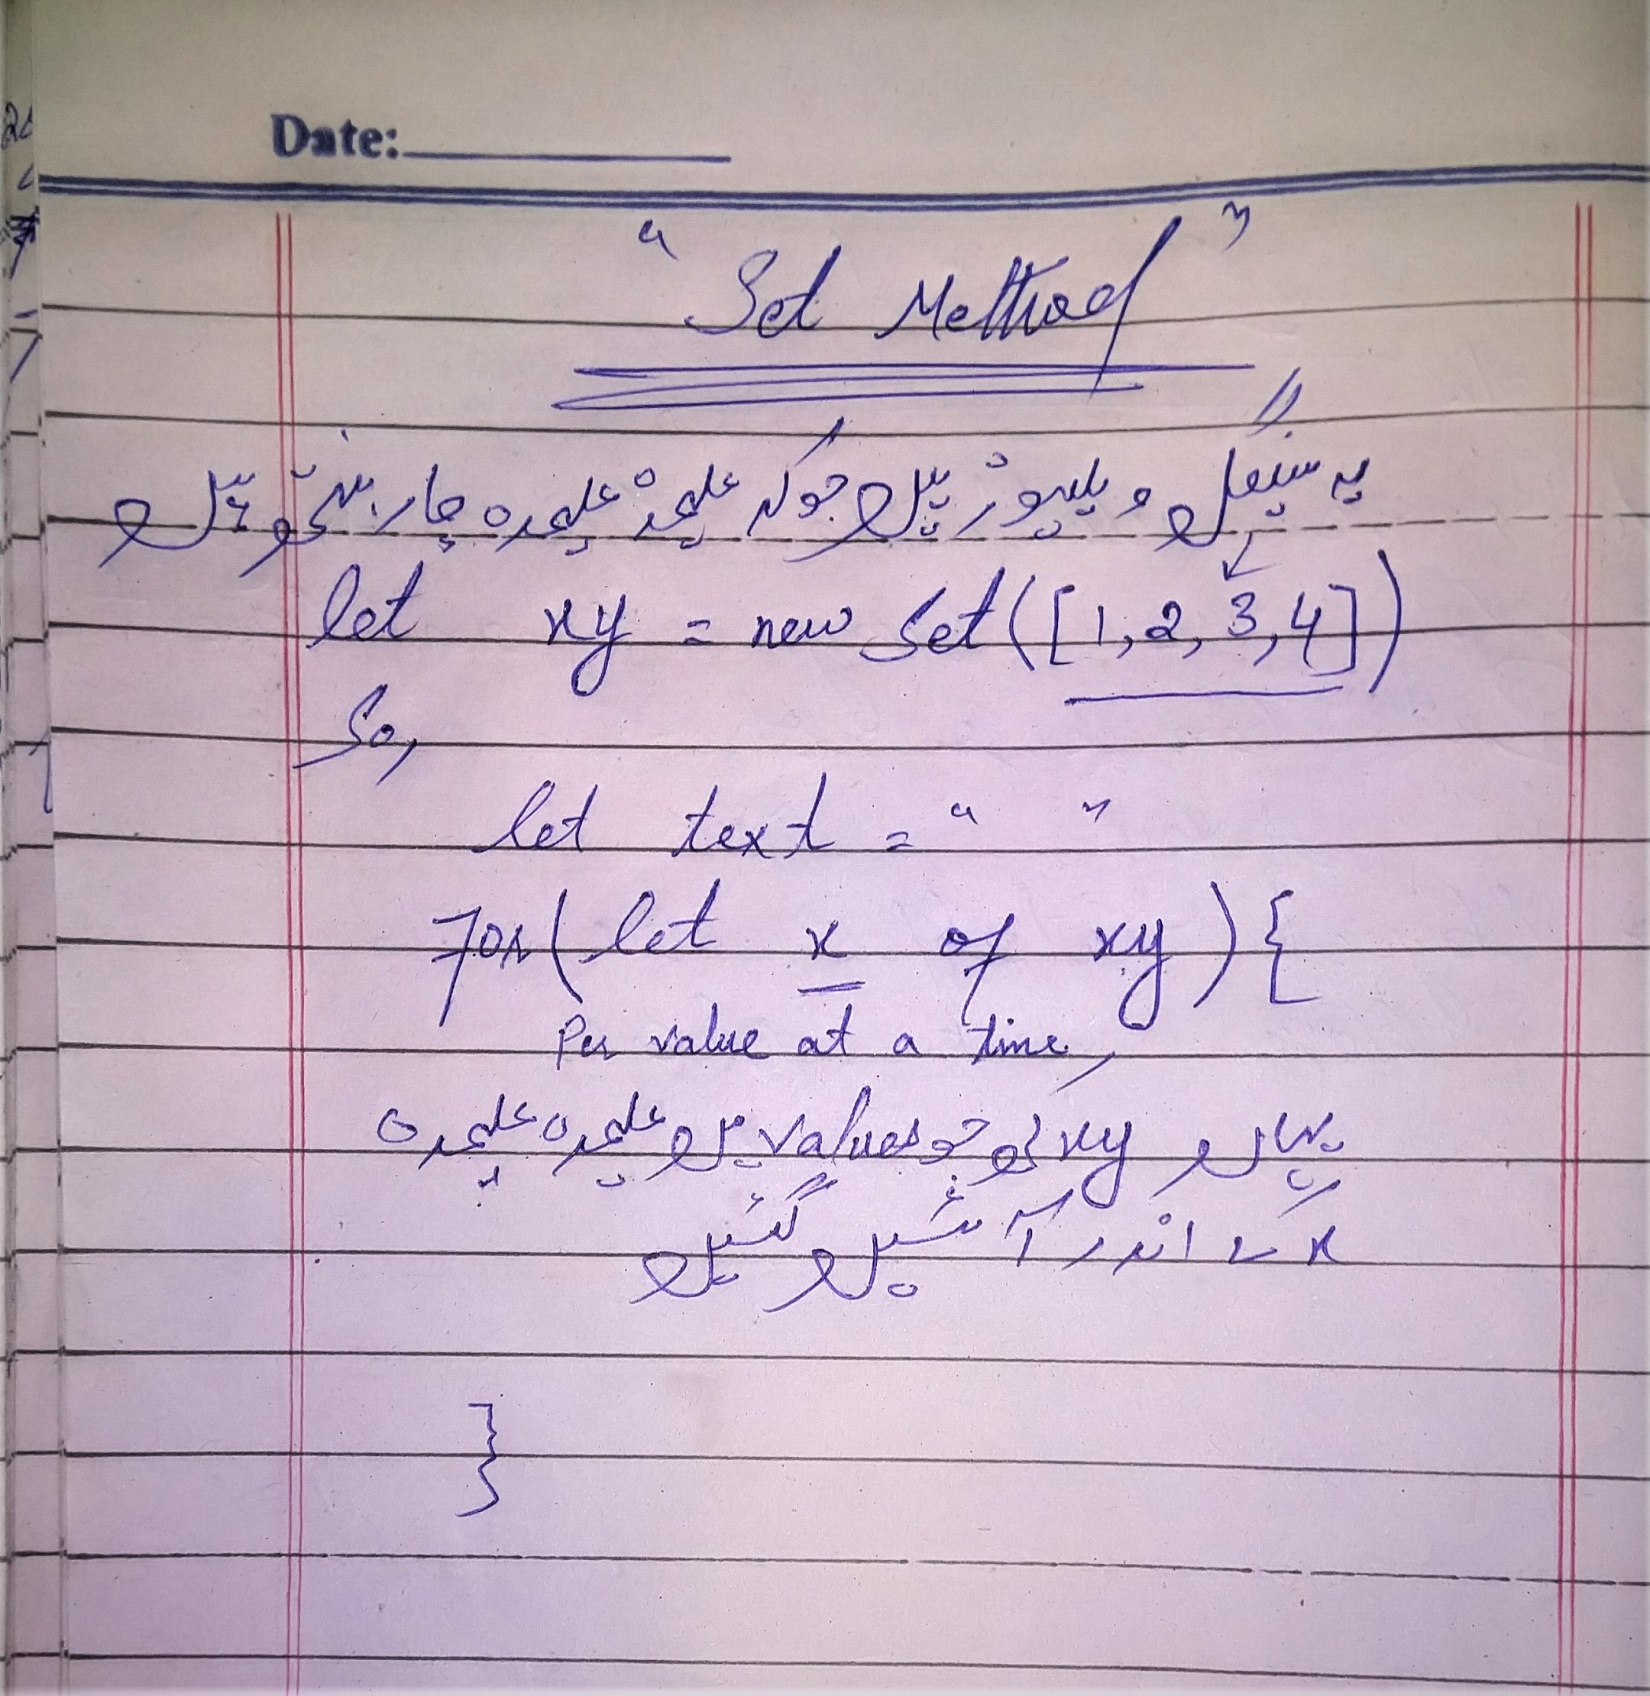 Date:
" Set Method "
یہ سینگل ویلیوز ہیں جوکہ علیحدہ علیحدہ چار
let xy = new Set([1,2,3,4])
So,
let text = " "
for(let x of xy){
Per value at a time,
یہاں xy کی جو values ہیں علیحدہ علیحدہ
x کے اندر آ گئیں
}